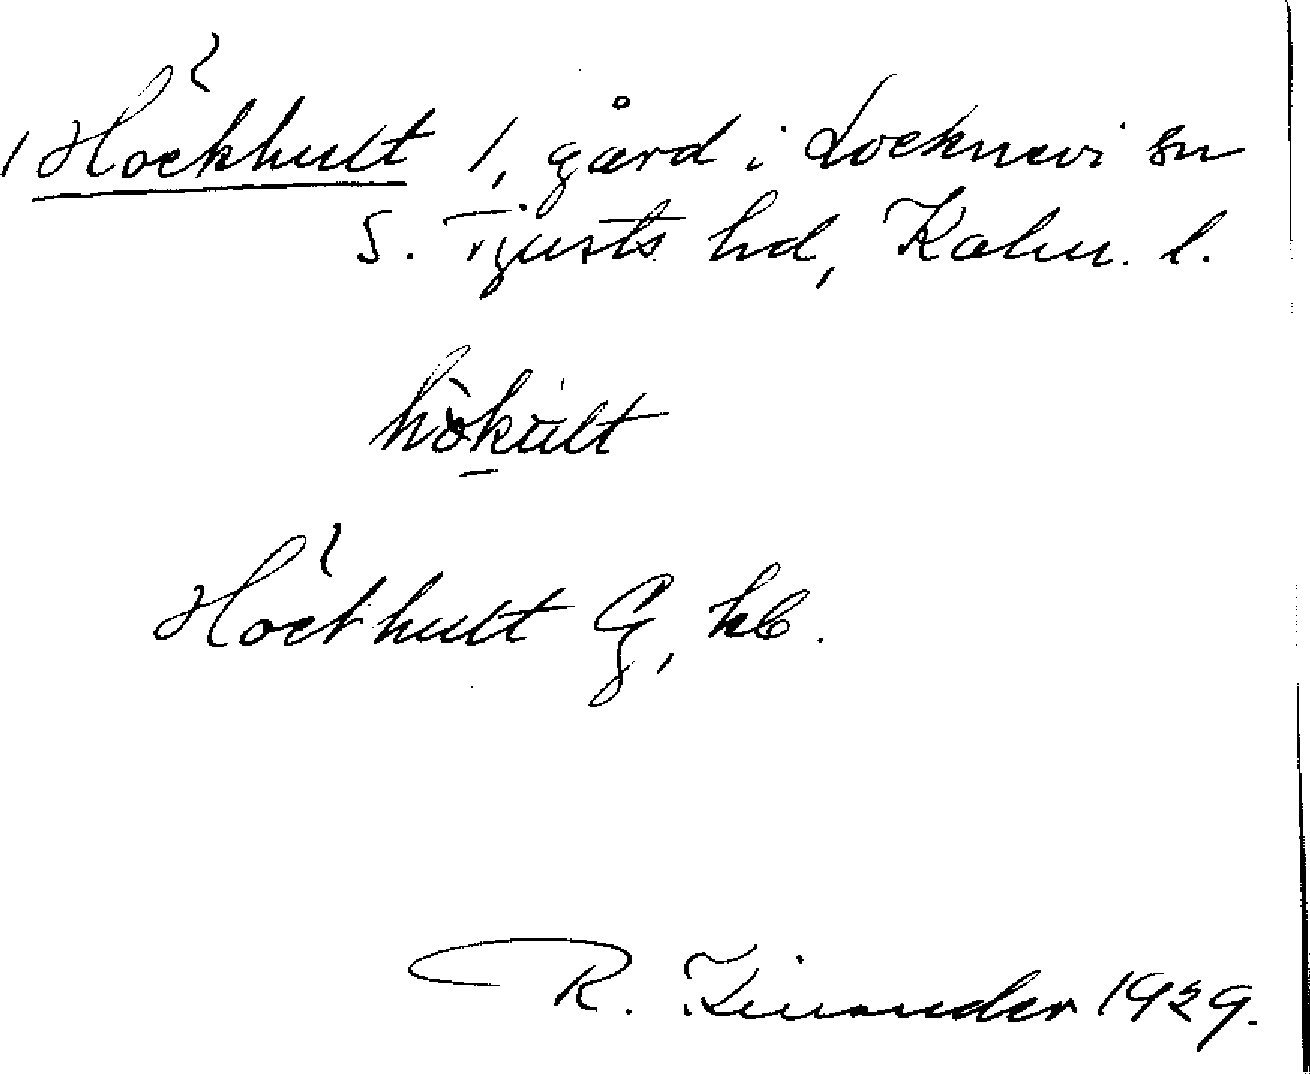 Höckhult 1, gård i Locknevi sn
S. Tjusts hd, Kalm. l.
hökult
Höckhult G, kb.
R. Kinander 1929.